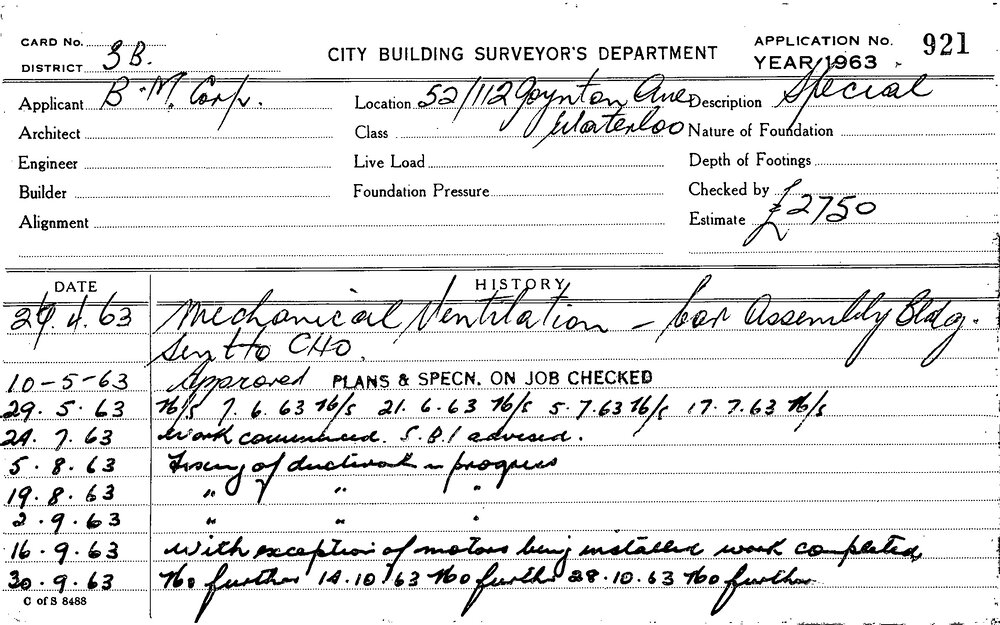 CARD No.
DISTRICT 3B.
CITY BUILDING SURVEYOR'S DEPARTMENT
APPLICATION No. 921
YEAR 1963
Applicant B.M. Corp.
Location 52/112 Joynton Ave
Waterloo
Description Special
Architect
Class
Nature of Foundation
Engineer
Live Load
Depth of Footings
Builder
Foundation Pressure
Checked by
Alignment
Estimate £2750
DATE HISTORY
29.4.63 Mechanical Ventilation – Car Assembly Bldg.
Sent to CHO.
10-5-63 Approved PLANS & SPECN. ON JOB CHECKED
29.5.63 N/S 7.6.63 N/S 21.6.63 N/S 5.7.63 N/S 17.7.63 N/S
29.7.63 Work commenced. S.B.I advised.
5.8.63 Fixing of ductwork in progress
19.8.63 " " "
2.9.63 " " "
16.9.63 With exception of motors being installed work completed
30.9.63 No further 14.10.63 No further 28.10.63 No further
C of S 8488